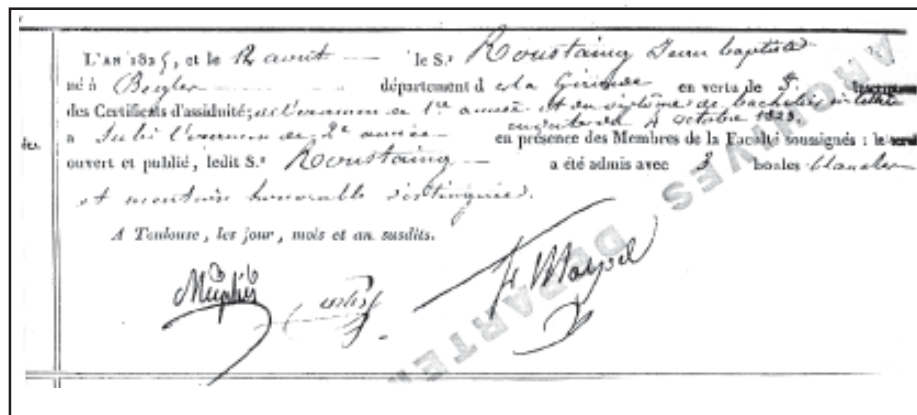 L'AN 1825, et le 12 aout le S.r Roustaing Jean baptiste
né à Begles département d e la Gironde en vertu de 8
des Certificats d'assiduité; de l'examen de 1re année et du diplôme de bachelier ès lettres
en date du 4 octobre 1823
a Subi l'examen de 2e année en présence des Membres de la Faculté soussignés : le
ouvert et publié, ledit S.r Roustaing a été admis avec 3 boules blanches
et mention honorable distinguée.
A Toulouse, les jour, mois et an susdits.
ARCHIVES DEPARTE